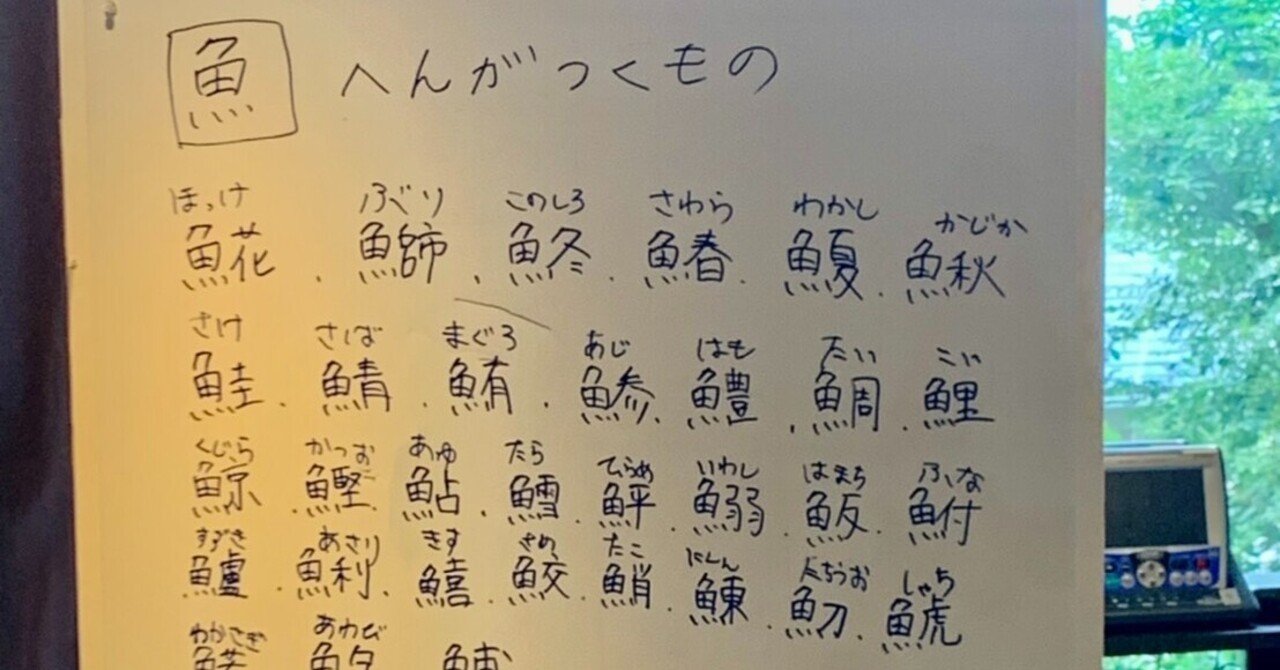 魚 へんがつくもの
ほっけ ぶり このしろ さわら わかし かじか
𩸽.鰤.鮗.鰆.鰍
さけ さば まぐろ あじ はも たい こい
鮭.鯖.鮪.鯵.鱧.鯛.鯉
くじら かつお あゆ たら ひらめ いわし はまち ふな
鯨.鰹.鮎.鱈.鮃.鰯.魬.鮒
すずき あさり きす さめ たこ にしん たちうお しゃち
鱸.鯏.鱚.鮫.鮹.鰊.魛.鯱
わかさぎ あわび